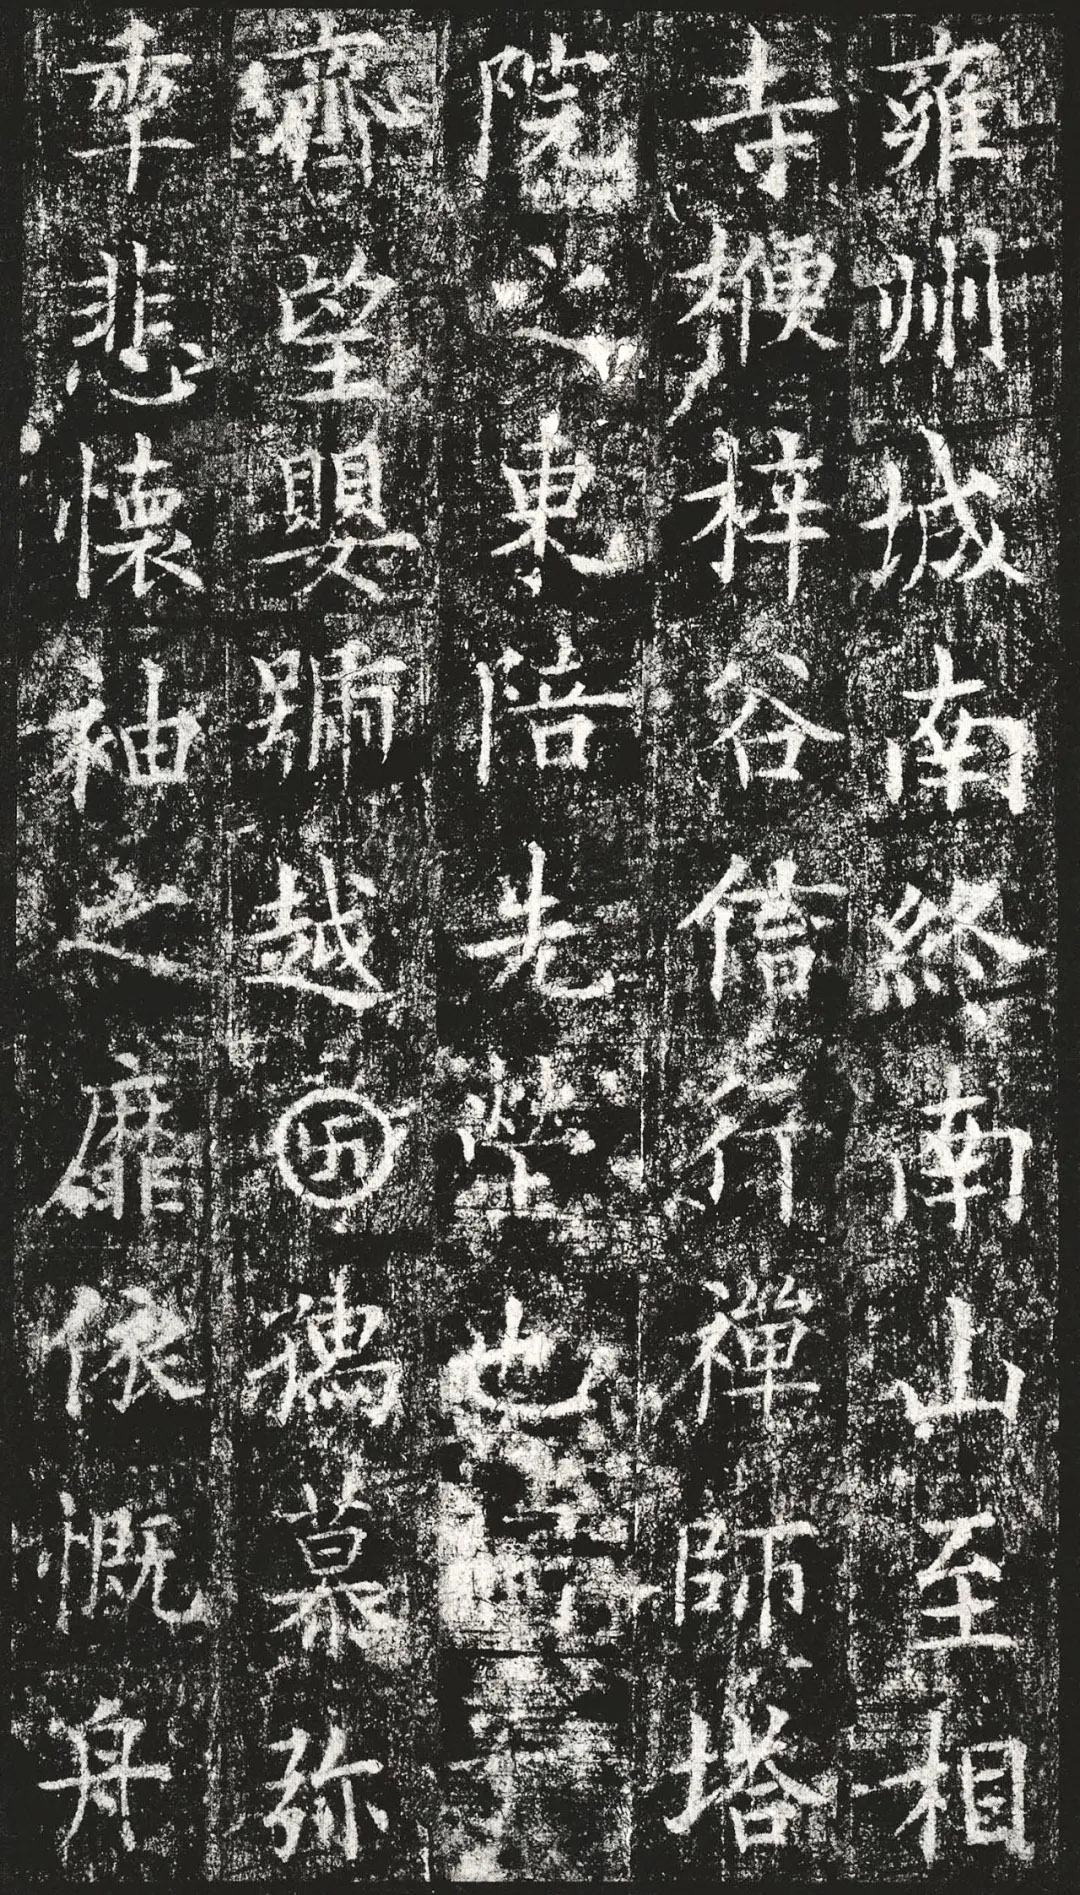 雍州城南終南山至相
寺楩梓谷信行禪師塔
院之東陪先塋也
齊望嬰號越卍攜慕弥
𠡦悲懷袖之靡依慨舟